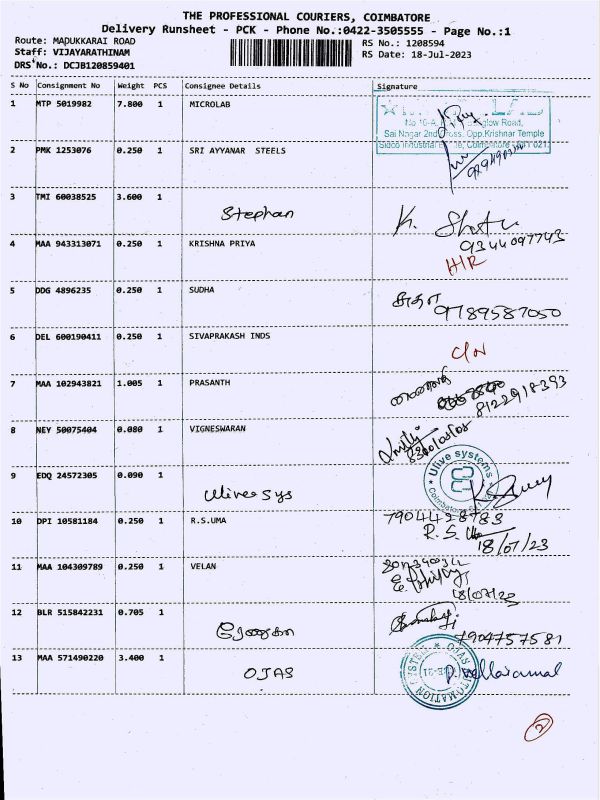 THE PROFESSIONAL COURIERS, COIMBATORE
Delivery Runsheet - PCK - Phone No.:0422-3505555 - Page No.:1
Route: MADUKKARAI ROAD
RS No.: 1208594
Staff: VIJAYARATHINAM
RS Date: 18-Jul-2023
DRS No.: DCJB120859401
S No Consignment No Weight PCS Consignee Details Signature
1 MTP 5019982 7.800 1 MICROLAB
Sai Nagar 2nd Cross, Opp.Krishnar Temple
2 PMK 1253076 0.250 1 SRI AYYANAR STEELS
3 TMI 60038525 3.600 1 Stephan
9344097743
4 MAA 943313071 0.250 1 KRISHNA PRIYA H/R
5 DDG 4896235 0.250 1 SUDHA சுதா
9789587050
6 DEL 600190411 0.250 1 SIVAPRAKASH INDS C/N
7 MAA 102943821 1.005 1 PRASANTH
8122918393
8 NEY 50075404 0.080 1 VIGNESWARAN
Ulive systems
9 EDQ 24572305 0.090 1 Ulive Sys
10 DPI 10581184 0.250 1 R.S.UMA 7904428783
R.S. Uma
18/07/23
11 MAA 104309789 0.250 1 VELAN
18/07/23
12 BLR 515842231 0.705 1
7904757581
13 MAA 571490220 3.400 1 OJAS
OJAS AUTOMATION SYSTEMS
2